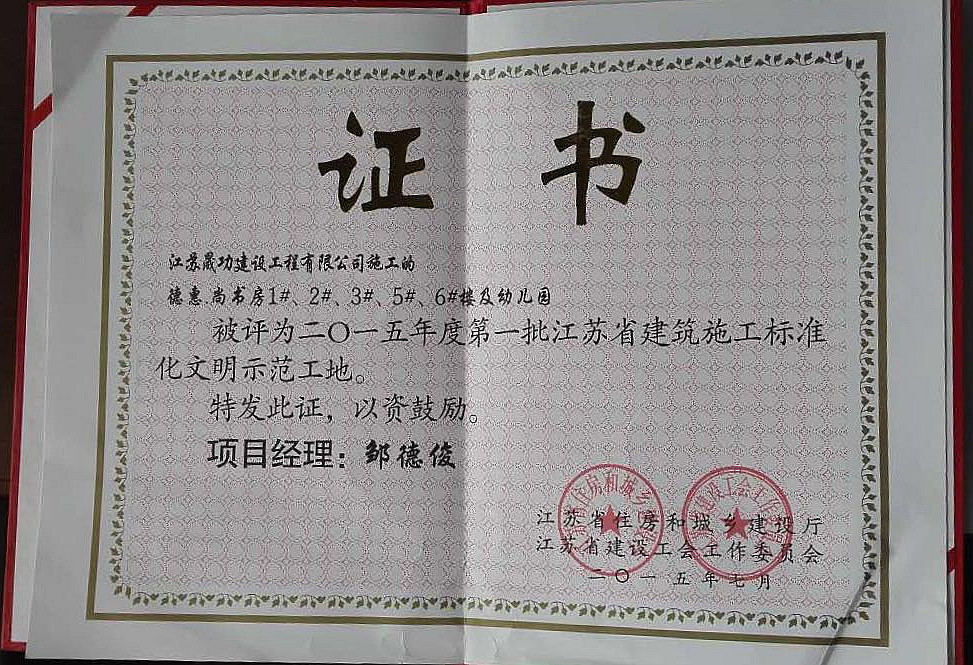 证书
江苏晟功建设工程有限公司施工的
德惠.尚书房1#、2#、3#、5#、6#楼及幼儿园
被评为二〇一五年度第一批江苏省建筑施工标准
化文明示范工地。
特发此证，以资鼓励。
项目经理：邹德俊
江苏省住房和城乡建设厅
江苏省建设工会工作委员会
二〇一五年七月